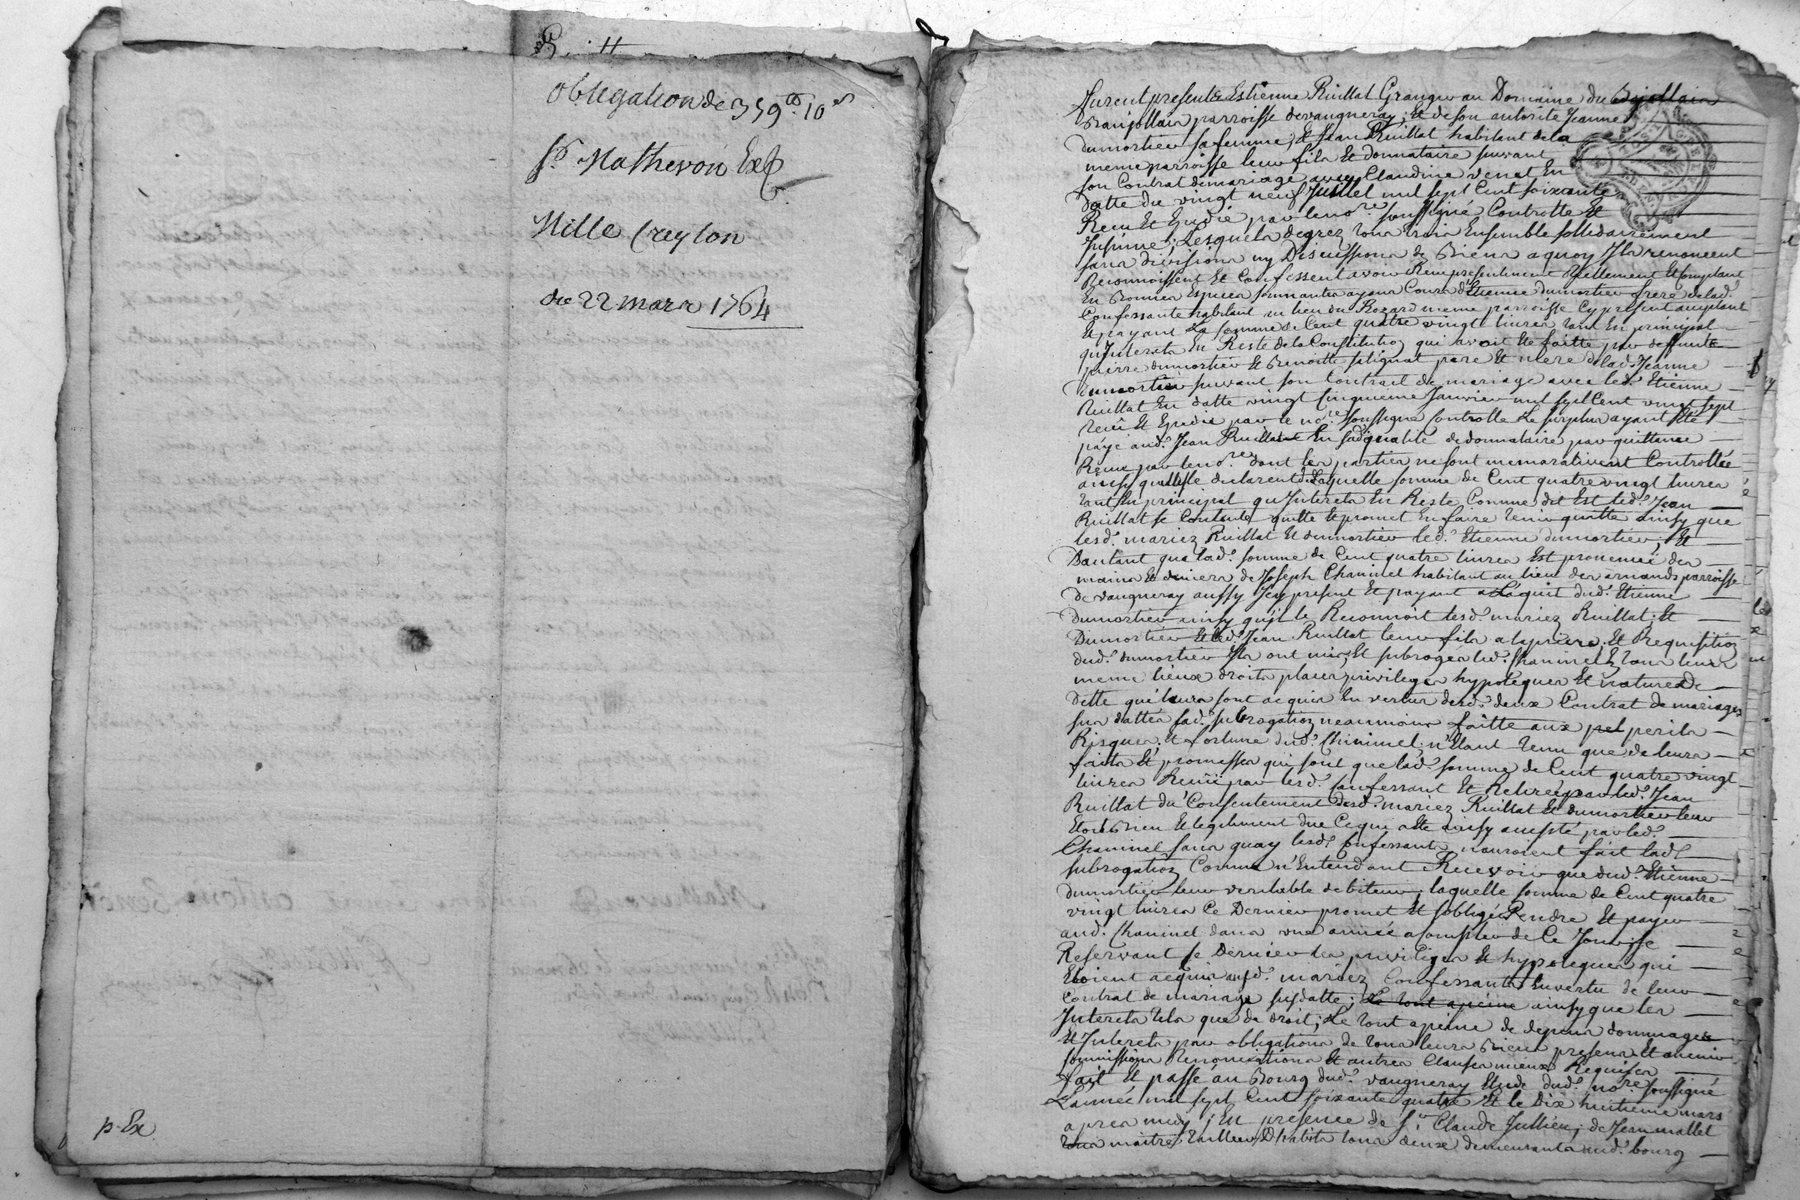 obligation de 359tt 10s
Sr. Mathevon
Mille Creyton
du 22 mars 1764
p. Ex
furent presents Estienne Ruillat Granger au Domaine du
parroisse devaugneray, Et de son autorité Jeanne
Dumortier sa femme, Et Jean Ruillat habitant de la
meme parroisse leur fils Et donnataire suivant
son Contrat de mariage avec Claudine venet En
datte du vingt neuf Juillet mil sept Cent soixante
Receu Et Expedié par le nore. soussigné Controllé Et
Insinué, Lesquels de grez tous trois Ensemble sollidairement
sans division ny Discussion de Biens a quoy Ils renoncent
Reconnoissent Et Confessent avoir Receu presentement Reellement Et Comptant
En Bonnes Especes sonnantes ayans Cours d'Etienne dumortier frere de lad.
Confessante habitant au lieu du Rozard meme parroisse Cy present acceptant
Et payant La somme de Cent quatre vingt livres tant En principal
qu'Interets En Reste de la Constitution qui avoit Eté faitte par deffunts
pierre dumortier Et Benoitte pere Et mere de lad. Jeanne
dumortier suivant son Contrat de mariage avec led. Etienne
Ruillat En datte vingt Cinquieme Janvier mil sept Cent vingt sept
Receu Et Expedié par le nore. soussigné Controllé Le surplus ayant Eté
payé aud. Jean Ruillat En sad. qualité de donnataire par quittance
Receue par le nore. dont les parties ne sont memoratives Controllée
ainsy qu'Elle declarent Laquelle somme de Cent quatre vingt livres
tant En principal qu'Interets En Reste Comme dit Est led. Jean
Ruillat se Contente quitte Et promet En faire tenir quitte ainsy que
lesd. mariez Ruillat Et dumortier led. Etienne dumortier, Et
Dautant que lad. somme de Cent quatre livres Est provenuë des
mains Et deniers de Joseph Chaninel habitant au lieu des arnauds parroisse
de vaugneray aussy Icy present Et payant a Laquit dud. Etienne
Dumortier ainsy qu'il le Reconnoit lesd. mariez Ruillat Et
Dumortier Et led. Jean Ruillat leur fils a la priere Et Requisition
dud. dumortier Ils ont mis Et subrogés led. Chaninel En tous leurs
meme lieux droits places privileges hypoteques Et natures de
dette qui leurs sont acquis En vertu desd. deux Contrat de mariages
sus dattés sad. subrogation neanmoins faitte aux perils
Risques Et fortune dud. Chaninel n'Etant tenu que de leurs
faits Et promesses qui sont que lad. somme de Cent quatre vingt
livres Receüe par lesd. Confessants Et Retirée par led. Jean
Ruillat du Consentement desd. mariez Ruillat Et dumortier leur
Etoit Bien Et legitiment due Ce qui a Eté ainsy accepté par led.
Chaninel sans quoy lesd. Confessants n'auroient fait lad.
subrogation Comme n'Entendant Recevoir que dud. Etienne
Dumortier leur veritable debiteur, laquelle somme de Cent quatre
vingt livres Ce Dernier promet Et s'oblige Rendre Et payer
aud. Chaninel dans une année a Compter de Ce Jourd'huy
Reservant Ce Dernier les privileges Et hypoteques qui
Etoient acquis auxd. mariez Confessants En vertu de leur
Contrat de mariage susdatté; Le tout a peine ainsy que les
Interets tels que de droit; Le tout a peine de depens dommages
Et Interets par obligations de tous leurs Biens presens Et avenir
soumissions Renonciations Et autres Clauses mieux Requises
fait Et passé au Bourg dud. vaugneray Etude dud. nore. soussigné
L'année mil sept Cent soixante quatre Et le Dix huitieme mars
apres midy, En presence de Sr. Claude Jullien, de Jean mallet
maitre habits tous deux demeurants aud. bourg